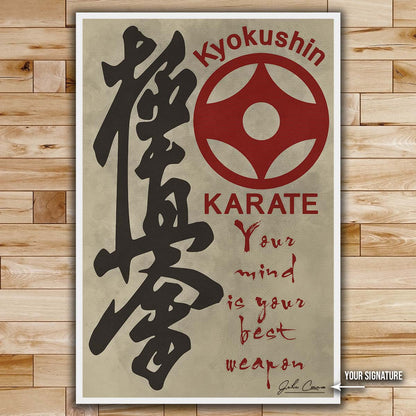 極真会
Kyokushin
KARATE
Your
mind
is your
best
weapon
John Cena
YOUR SIGNATURE